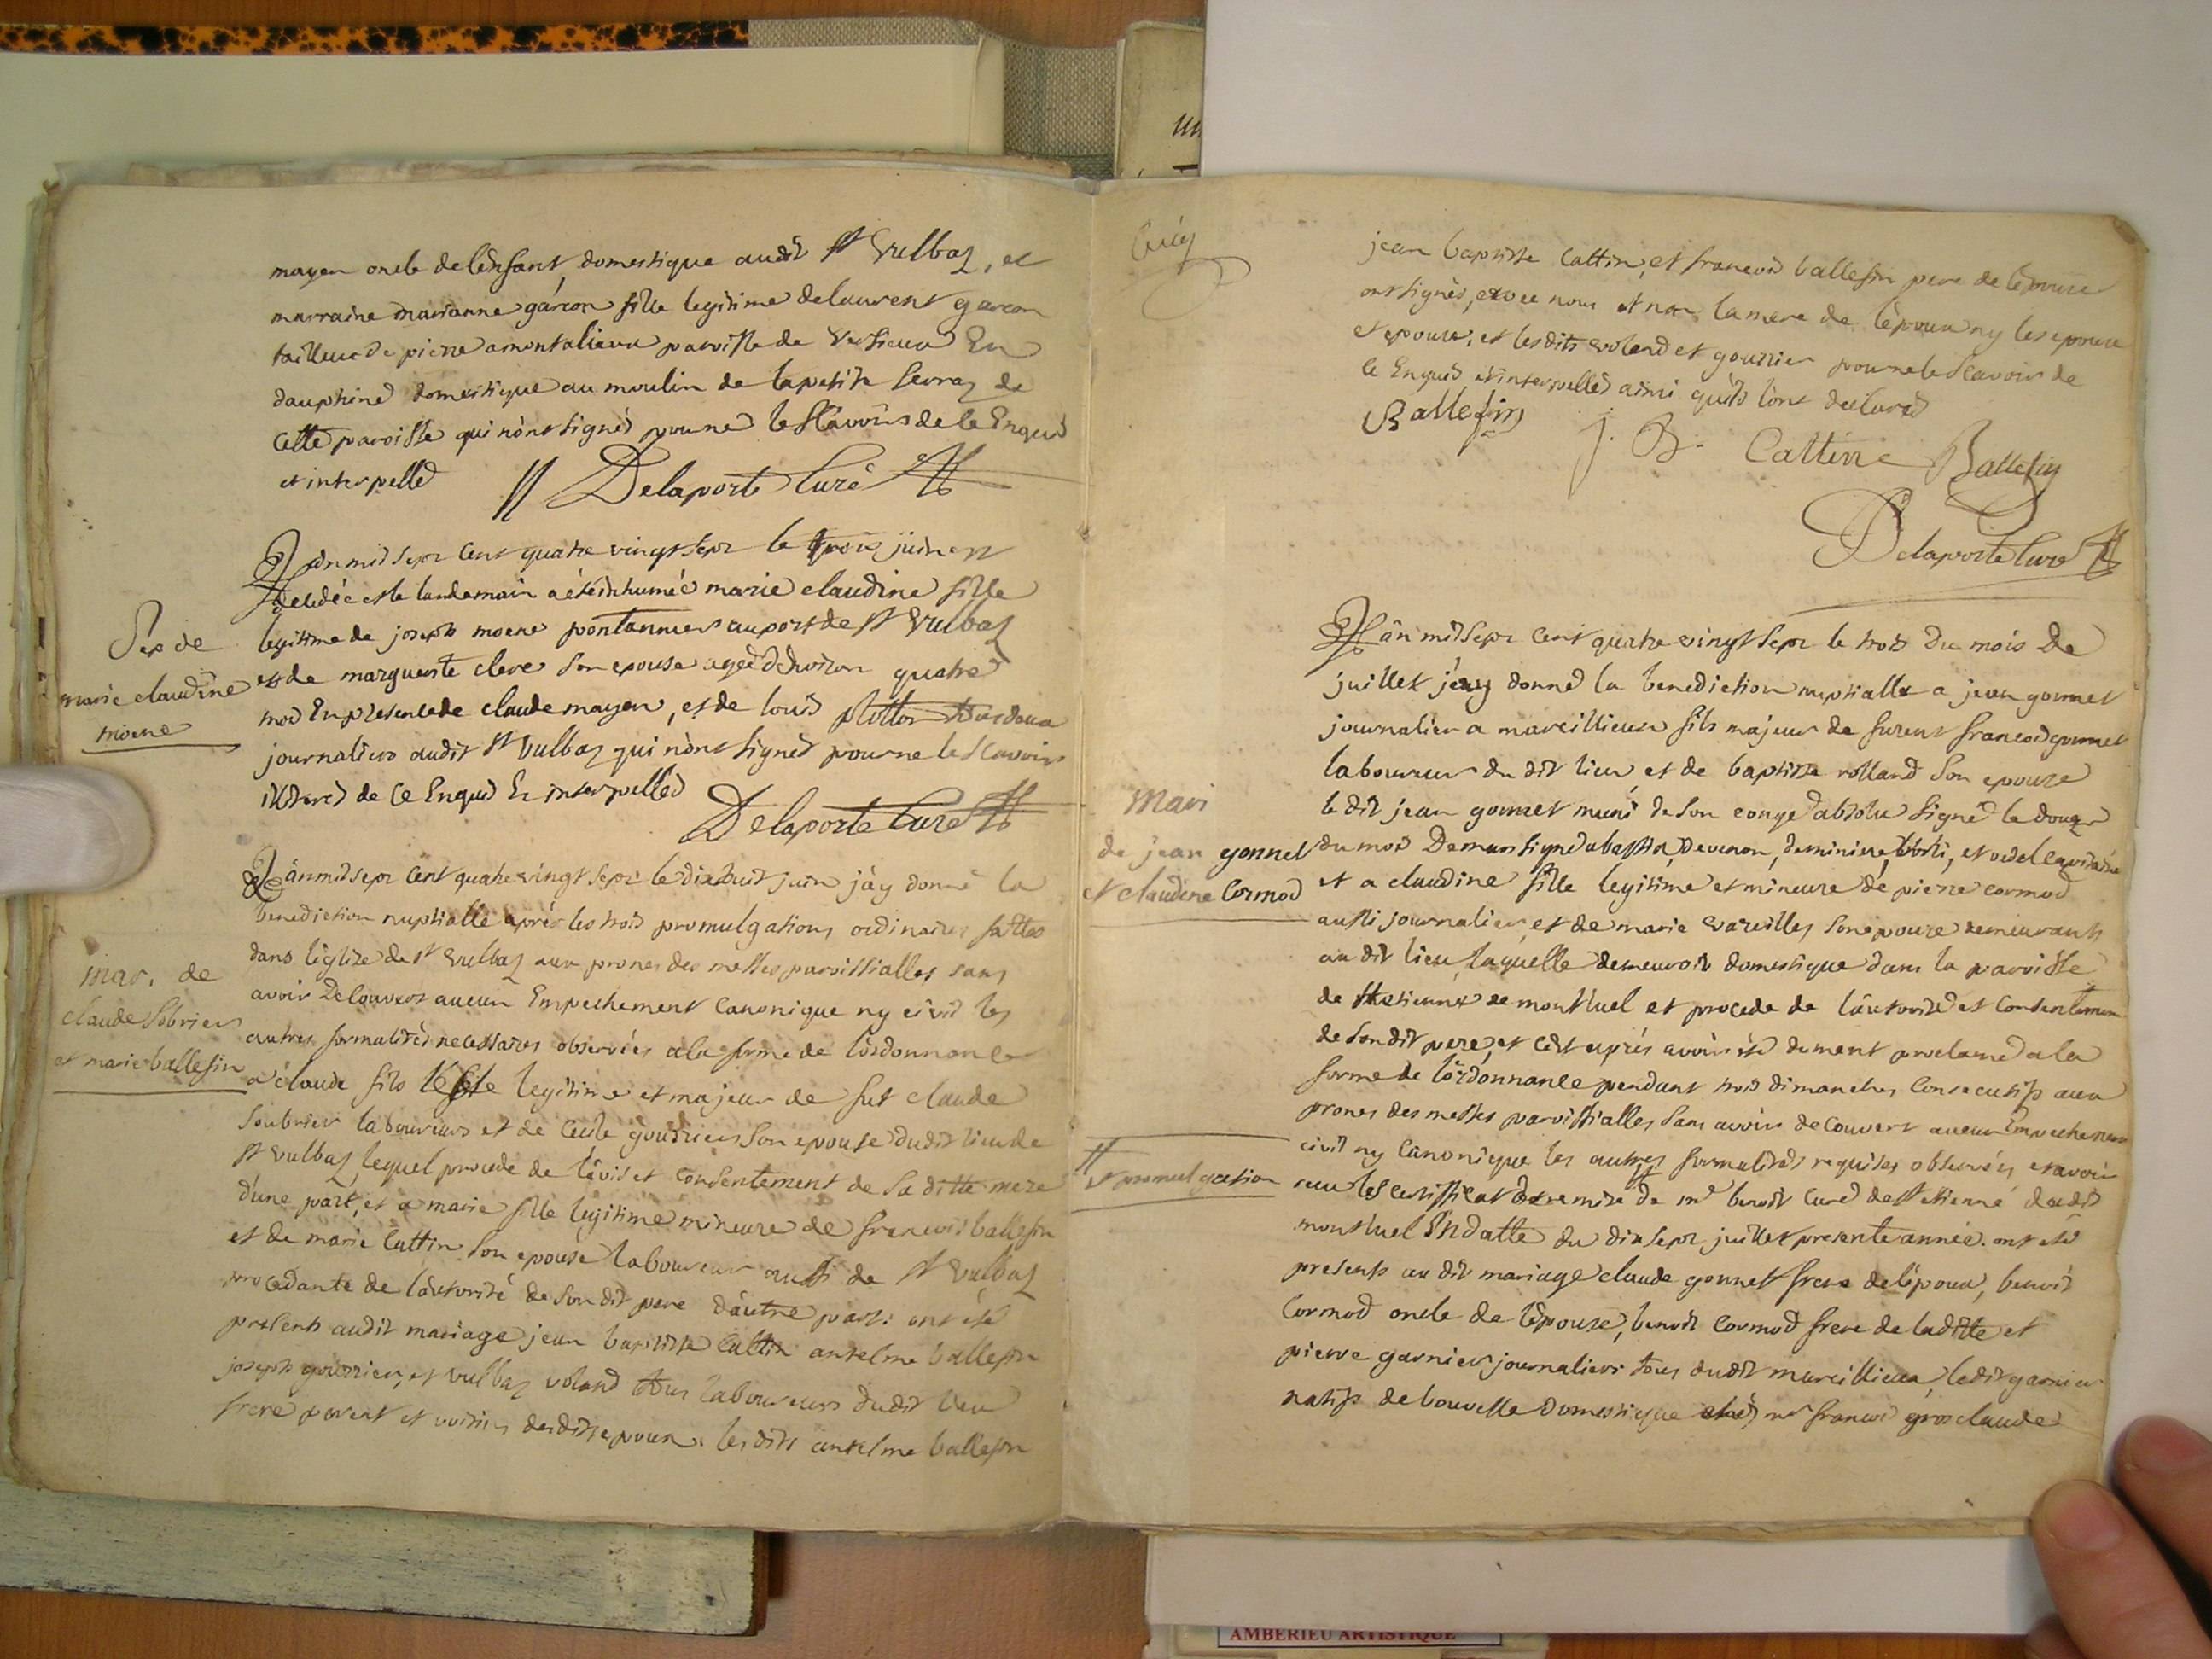 mayen oncle de lénfant domestique audit st Vulbaz, et
marraine marianne garcon fille legitime de laurent garcon
tailleur de pierre a montalieu paroisse de Vertieux En
dauphiné domestique au moulin de la petite serraz de
Cette paroisse qui nónt signés pour ne le scavoirs de ce Enquis
et interpellés
Delaporte Curé
Lán mil sept Cent quatre vingt sept le trois juin est
decedée et le landemain a été inhumée marie claudine fille
legitime de joseph moene pontonnier au port de st Vulbaz
et de marguerite cleve son epouse agée d'environ quatre
mois En presence de claude mayen, et de louis
journaliers audit st Vulbaz qui nónt signés pour ne le scavoirs
de Ce Enquis Et interpellés
Delaporte Curé
Sep de
marie claudine
moene
Lán mil sept Cent quatre vingt sept le dix huit juin jáy donné la
benediction nuptialle aprés les trois promulgations ordinaires faittes
dans léglize de st Vulbaz aux prones des messes paroissialles sans
avoir Decouvert aucun Empechement Canonique ny civil les
autres formalités necessaires observées a la forme de lórdonnance
a claude fils legitime et majeur de fut claude
Soubrier laboureurs et de Cecile gourrier son epouse dudit lieu de
st Vulbaz, lequel procede de lávis et Consentement de sa ditte mere
d'une part, et a marie fille legitime mineure de francois ballefin
et de marie Cattin son epouse laboureur aussi de st Vulbaz
procedante de láutorité de son dit pere dáutre part: ont été
presents audit mariage jean baptiste Cattin anselme ballefin
joseph gourrier, et Vulbaz voland tous laboureurs dudit lieu
frere parent et voisins desdits epoux. les dits anselme ballefin
mar. de
claude Sobrier
et marie ballefin
jean baptiste Cattin, et francois ballefin pere de lépouse
ont signés, avec nous et non la mere de lépoux ny les epoux
et epouse, et lesdits voland et gourrier pour ne le scavoir de
ce Enquis et interpellés ainsi quíls lónt declarés
Ballefin
J. B. Cattin Ballefin
Delaporte Curé
Lán mil sept Cent quatre vingt sept le trois du mois de
juillet jéay donné la benediction nuptialle a jean gonnet
journalier a marcillieux fils majeur de furent francois gonnet
laboureur du dit lieu et de baptiste rolland son epouze
le dit jean gonnet muni de son congé absolu signé le douze
du mois De mars signé
et a claudine fille legitime et mineure de pierre cormod
aussi journalier, et de marie vareilles son epouze demeurants
au dit lieu, laquelle demeuroit domestique dans la paroisse
de st etienne de montluel et procede de láutorité et Consentement
de son dit pere, et cést aprés avoir été dument proclamé a la
forme de lórdonnance pendant trois dimanches Consecutifs aux
prones des messes paroissialles sans avoir decouvert aucun Empechement
civil ny Canonique les autres formalités requises observées, et avoir
receu les certifficat de remise de mr benoit Curé de st etienne dudit
montluel En datte du dix sept juillet presente année. ont été
presents au dit mariage claude gonnet frere de lépoux, benoit
Cormod oncle de lépouze, benoit Cormod frere de laditte et
pierre garnier journaliers tous dudit marcillieux, ledit garnier
natif de bouvesse domestique chés mr francois gros claude
Mari
de jean gonnet
et claudine Cormod
et promulgation
AMBERIEU ARTISTIQUE